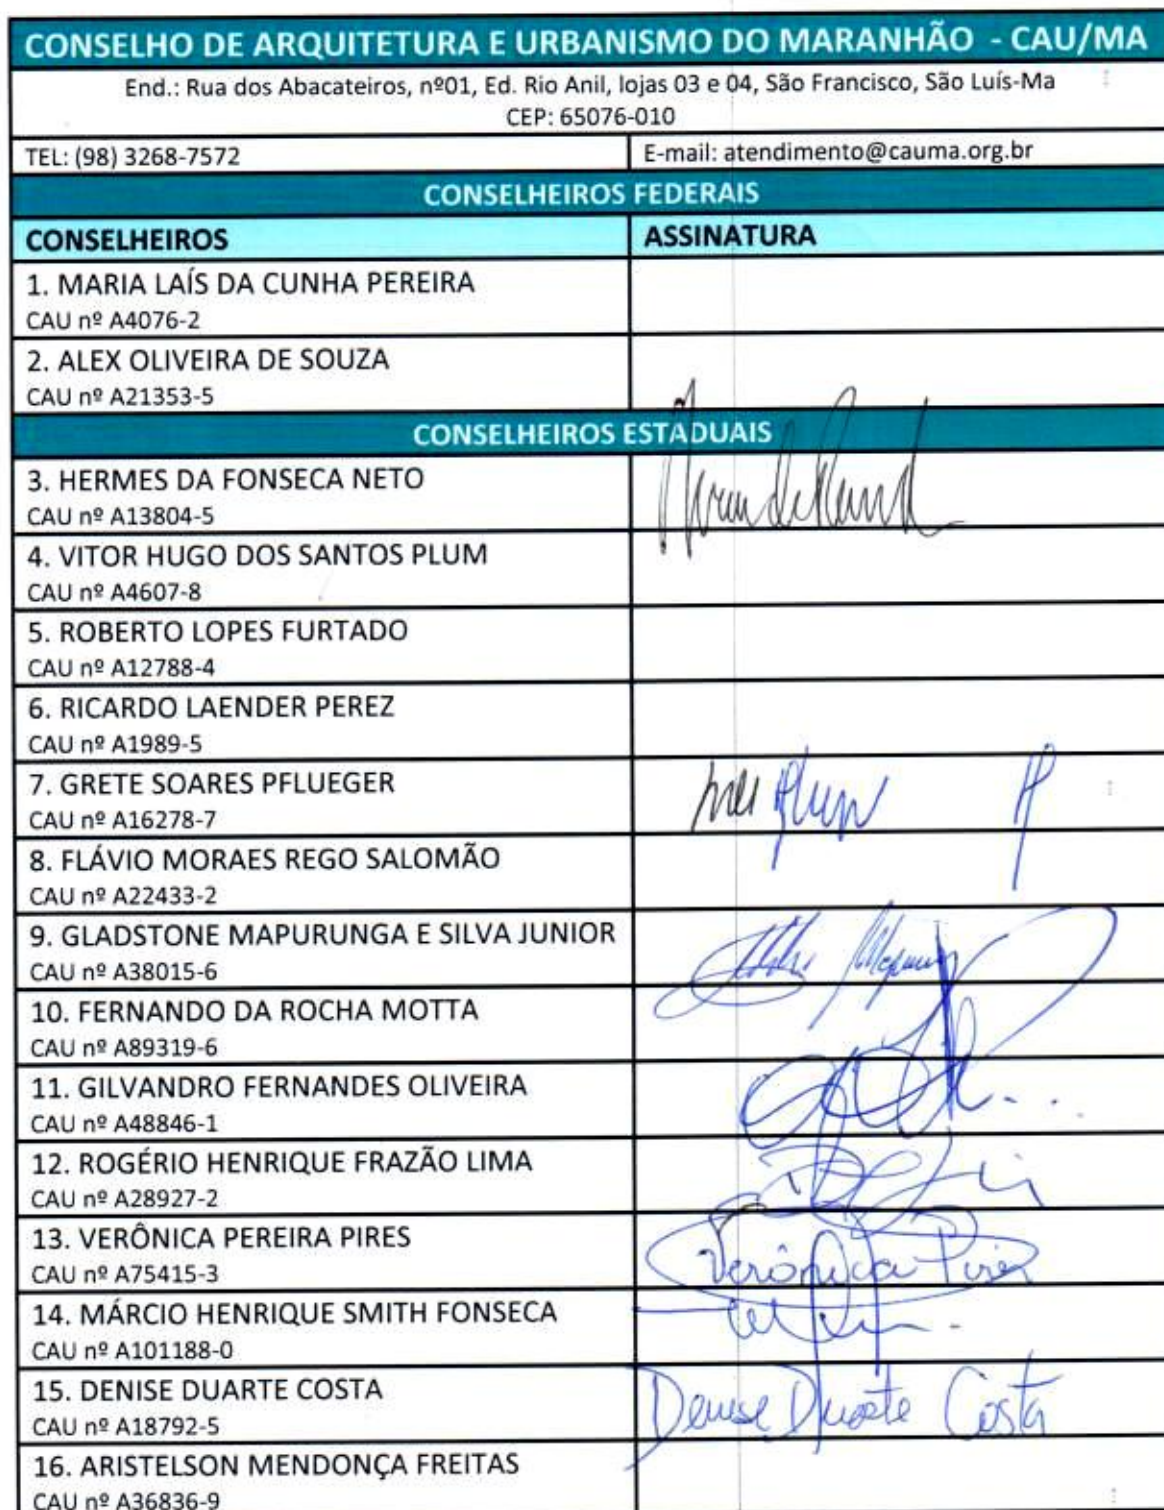 CONSELHO DE ARQUITETURA E URBANISMO DO MARANHÃO - CAU/MA
End.: Rua dos Abacateiros, nº01, Ed. Rio Anil, lojas 03 e 04, São Francisco, São Luís-Ma
CEP: 65076-010
TEL: (98) 3268-7572 E-mail: atendimento@cauma.org.br
CONSELHEIROS FEDERAIS
CONSELHEIROS ASSINATURA
1. MARIA LAÍS DA CUNHA PEREIRA
CAU nº A4076-2
2. ALEX OLIVEIRA DE SOUZA
CAU nº A21353-5
CONSELHEIROS ESTADUAIS
3. HERMES DA FONSECA NETO
CAU nº A13804-5
4. VITOR HUGO DOS SANTOS PLUM
CAU nº A4607-8
5. ROBERTO LOPES FURTADO
CAU nº A12788-4
6. RICARDO LAENDER PEREZ
CAU nº A1989-5
7. GRETE SOARES PFLUEGER
CAU nº A16278-7
8. FLÁVIO MORAES REGO SALOMÃO
CAU nº A22433-2
9. GLADSTONE MAPURUNGA E SILVA JUNIOR
CAU nº A38015-6
10. FERNANDO DA ROCHA MOTTA
CAU nº A89319-6
11. GILVANDRO FERNANDES OLIVEIRA
CAU nº A48846-1
12. ROGÉRIO HENRIQUE FRAZÃO LIMA
CAU nº A28927-2
13. VERÔNICA PEREIRA PIRES Verônica Pires
CAU nº A75415-3
14. MÁRCIO HENRIQUE SMITH FONSECA
CAU nº A101188-0
15. DENISE DUARTE COSTA Denise Duarte Costa
CAU nº A18792-5
16. ARISTELSON MENDONÇA FREITAS
CAU nº A36836-9